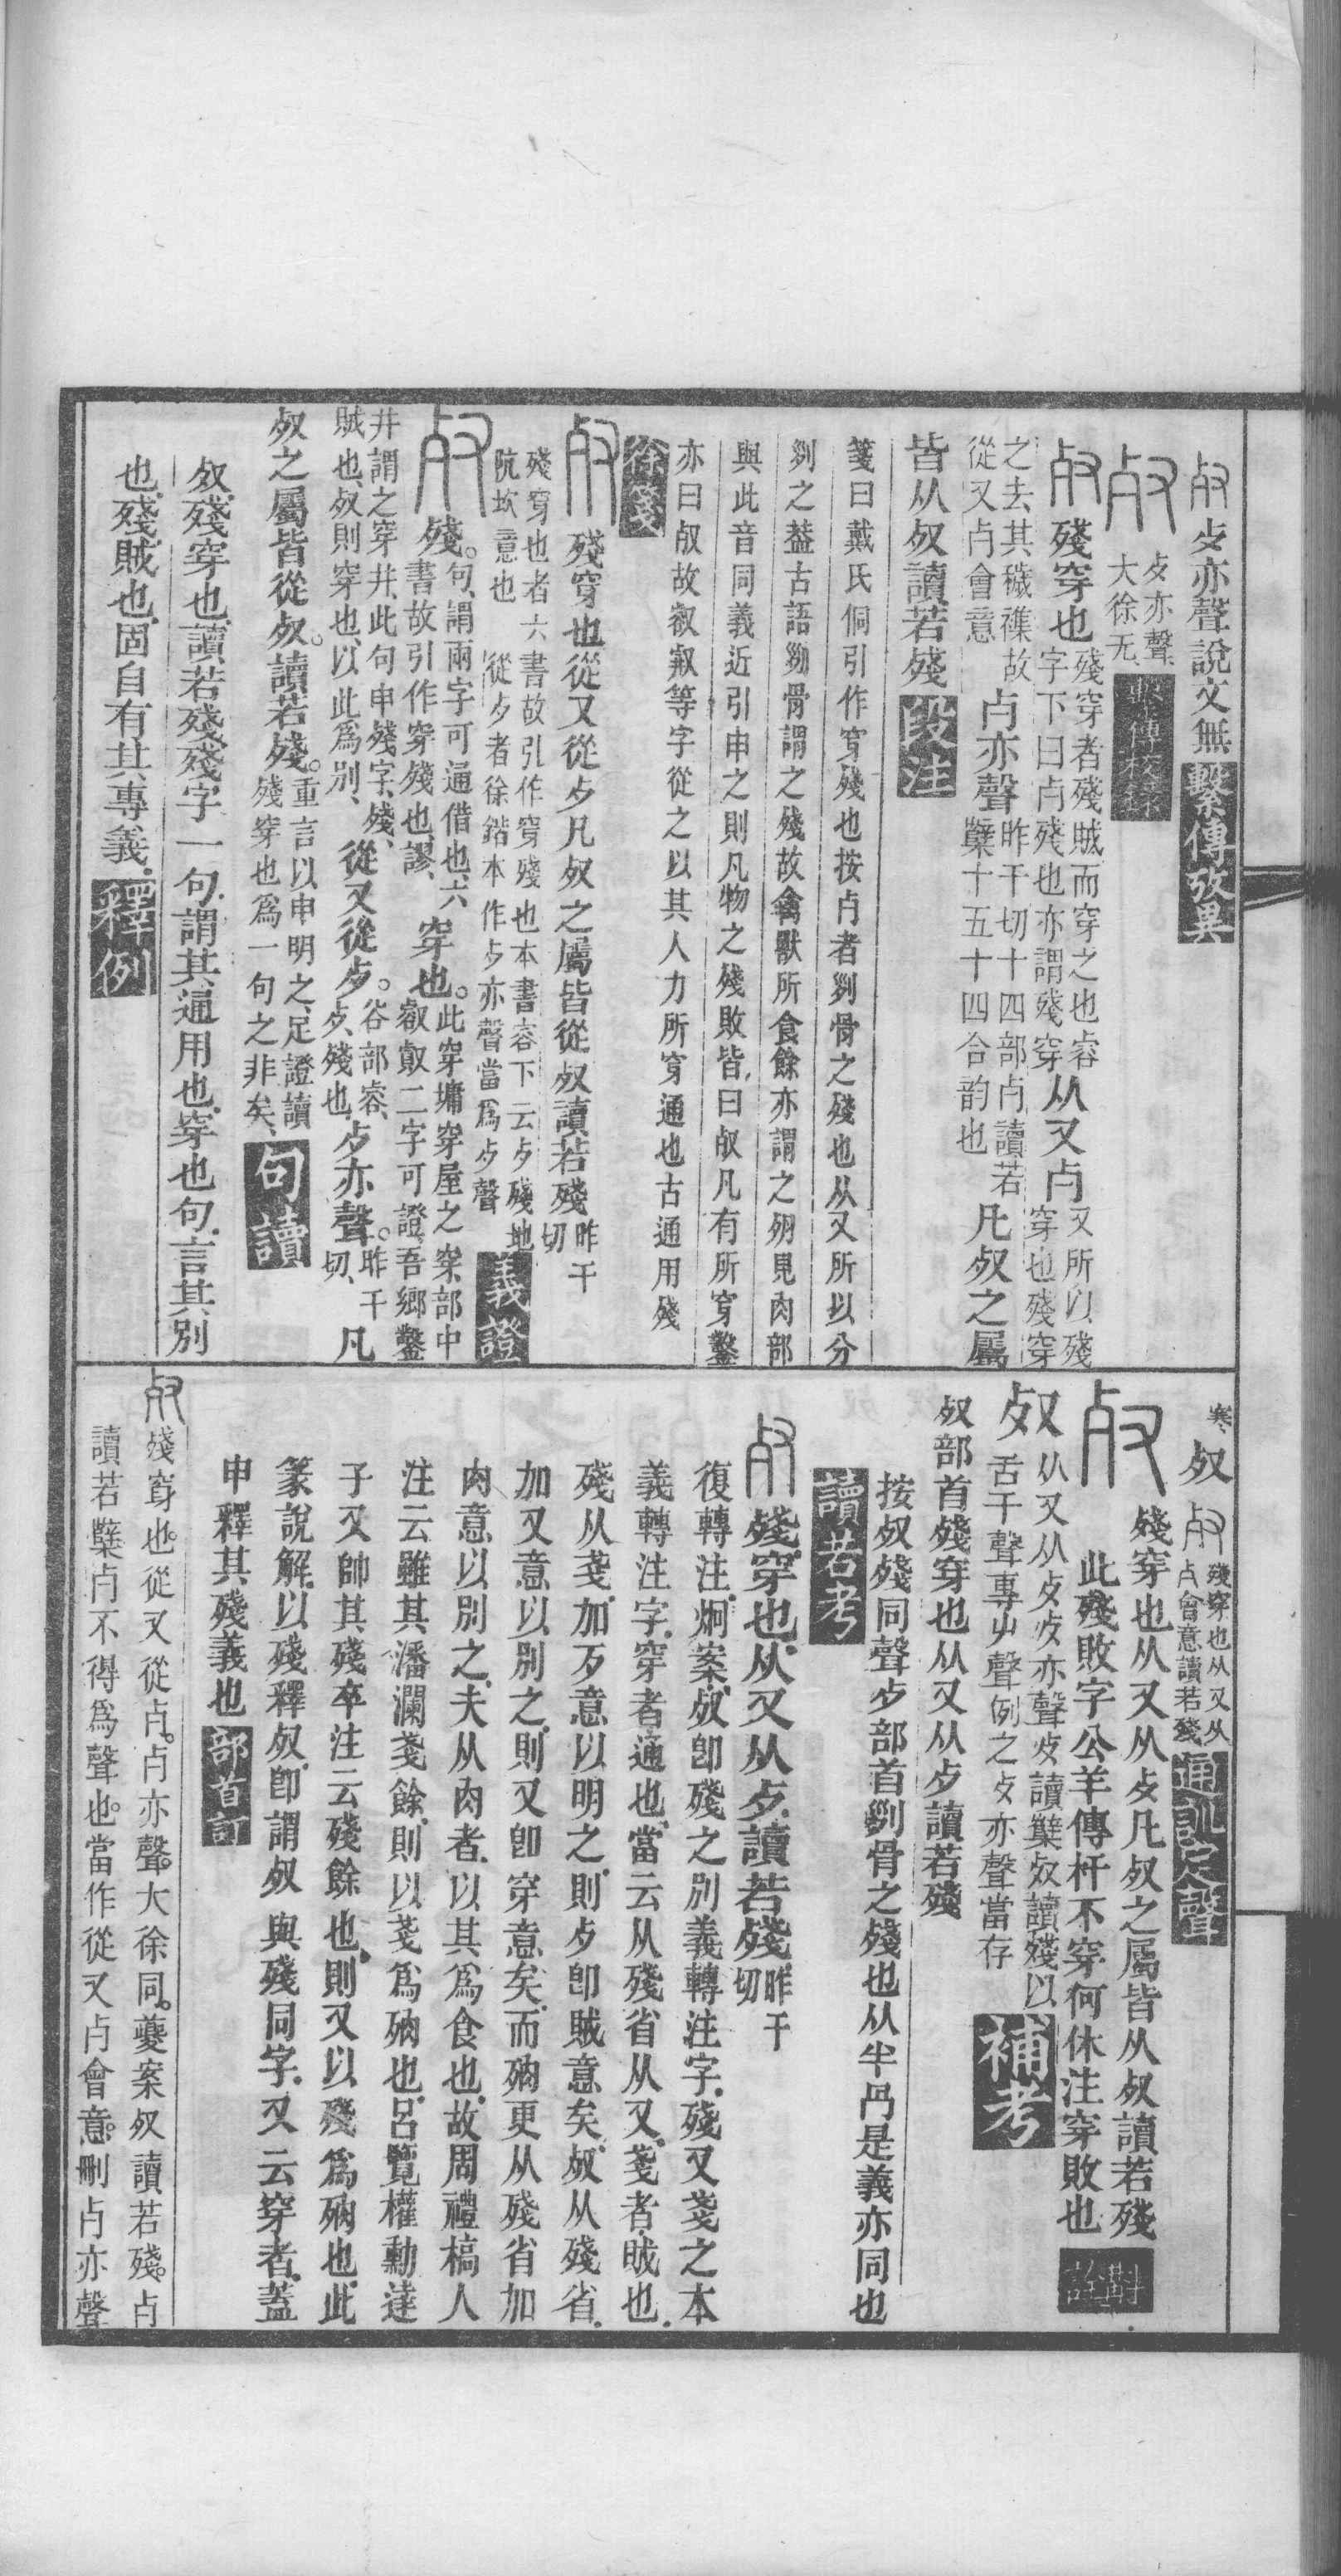 歺亦聲說文無繫傳攷異
歺亦聲
大徐无
繫傳校錄
殘穿也
殘穿者殘賊而穿之也䜭
字下曰歺殘也亦謂殘穿
从又歺
又所以殘
穿也殘穿
之去其穢襍故
從又歺會意
歺亦聲
昨干切十四部歺讀若
櫱十五十四合韵也
凡𣦼之屬
皆从𣦼讀若殘段注
箋曰戴氏侗引作穿殘也按歺者剡骨之殘也从又所以分
剡之葢古語剡骨謂之殘故禽獸所食餘亦謂之𣧻見肉部
與此音同義近引申之則凡物之殘敗皆曰𣦼凡有所穿鑿
亦曰𣦼故叡㕡等字從之以其人力所穿通也古通用殘
徐箋
殘穿也從又從歺凡𣦼之屬皆從𣦼讀若殘
昨干
切
殘穿也者六書故引作穿殘也本書䜭下云歺殘地
阬坎意也 從歺者徐鍇本作歺亦聲當爲歺聲
義證
殘。
句、謂兩字可通借也、六
書故引作穿殘也、謬、
穿也。
此穿墉穿屋之穿、部中
叡㕡二字可證、吾鄉鑿
井謂之穿井、此句申殘字、殘、
賊也、𣦼則穿也、以此爲別、
從又從歺。
谷部䜭、
歺、殘也、
歺亦聲。
昨干
切、
凡
𣦼之屬皆從𣦼。讀若殘。
重言以申明之、足證讀
殘穿也爲一句之非矣、
句讀
𣦼、殘穿也、讀若殘、殘字一句、謂其通用也、穿也句、言其別
也、殘、賊也、固自有其專義、釋例
寒、𣦼
殘穿也从又从
歺會意讀若殘
通訓定聲
殘穿也从又从歺凡𣦼之屬皆从𣦼讀若殘
此殘敗字公羊傳杅不穿何休注穿敗也
斠詮
𣦼
从又从歺歺亦聲歺讀櫱𣦼讀殘以
舌干聲專屮聲例之歺亦聲當存
補考
𣦼部首殘穿也从又从歺讀若殘
按𣦼殘同聲歺部首剡骨之殘也从半冎是義亦同也
讀若考
殘穿也、从又从歺、讀若殘、
昨干
切
復轉注、炯案、𣦼卽殘之別義轉注字、殘又戔之本
義轉注字、穿者通也、當云从殘省从又、戔者、賊也、
殘从戔、加歹意以明之、則歺卽賊意矣、𣦼从殘省、
加又意以別之、則又卽穿意矣、而𣧻更从殘省加
肉意以別之、夫从肉者、以其爲食也、故周禮槁人
注云雖其潘瀾戔餘、則以戔爲𣧻也、呂覽權勳達
子又帥其殘卒注云殘餘也、則又以殘爲𣧻也、此
篆說解、以殘釋𣦼、卽謂𣦼與殘同字、又云穿者、蓋
申釋其殘義也部首訂
殘穿也。從又從歺。歺亦聲。大徐同。夔案𣦼讀若殘。歺
讀若櫱歺不得爲聲也。當作從又歺會意。刪歺亦聲